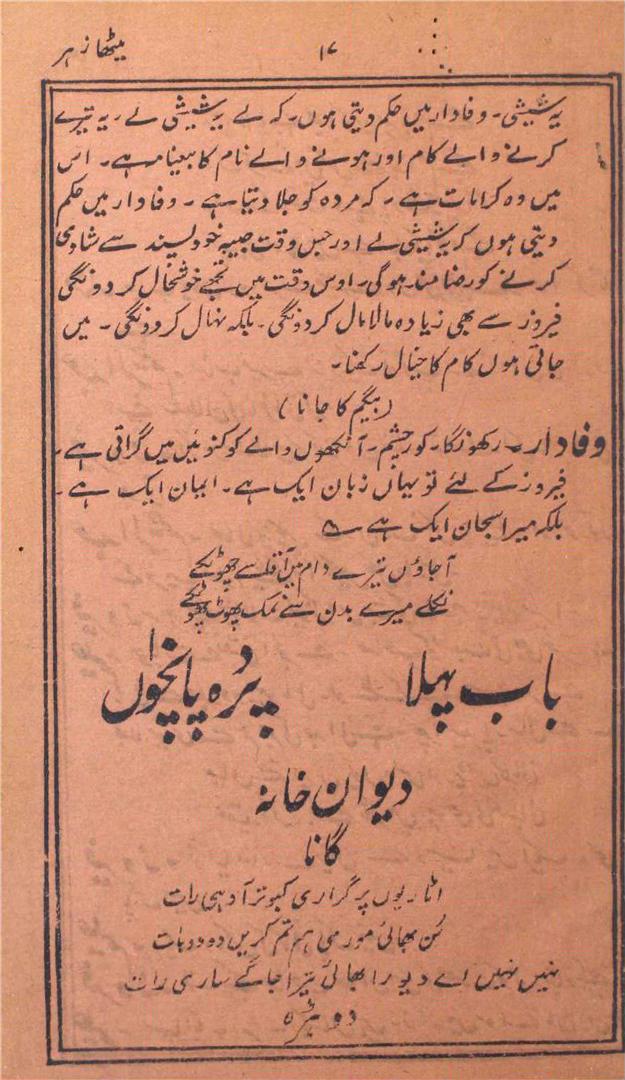 میٹھا زہر
۱۷
یہ شیشی۔ وفادار میں حکم دیتی ہوں۔ کہ لے یہ شیشی لے۔ یہ تیرے
کرنے والے کام اور ہونے والے نام کا بیعنامہ ہے۔ اس
میں وہ کرامات ہے۔ کہ مردہ کو جلا دیتا ہے۔ وفادار میں حکم
دیتی ہوں کہ یہ شیشی لے اور جس وقت حبیبہ خود پسند سے شادی
کرنے کو رضامند ہوگی۔ اوس وقت میں تجھے خوشحال کر دونگی
فیروز سے بھی زیادہ مالا مال کر دونگی۔ بلکہ نہال کر دونگی۔ میں
جاتی ہوں کام کا خیال رکھنا۔
(بیگم کا جانا)
وفادار۔ رکھونگا۔ کور چشم۔ آنکھوں والے کو کنوئیں میں گراتی ہے۔
فیروز کے لئے تو یہاں زبان ایک ہے۔ ایمان ایک ہے۔
بلکہ میرا سبحان ایک ہے
آجاؤں تیرے دام میں آقا سے چھوٹکے
نکلے میرے بدن سے نمک پھوٹ پھوٹکے
باب پہلا پردہ پانچواں
دیوان خانہ
گانا
اٹاریوں پر گراری کبوتر آدھی رات
سُن بھائی مورمی ہم تم کریں دو دو بات
نہیں نہیں اے دیورا بھائی تیرا جاگے ساری رات
دوہڑہ